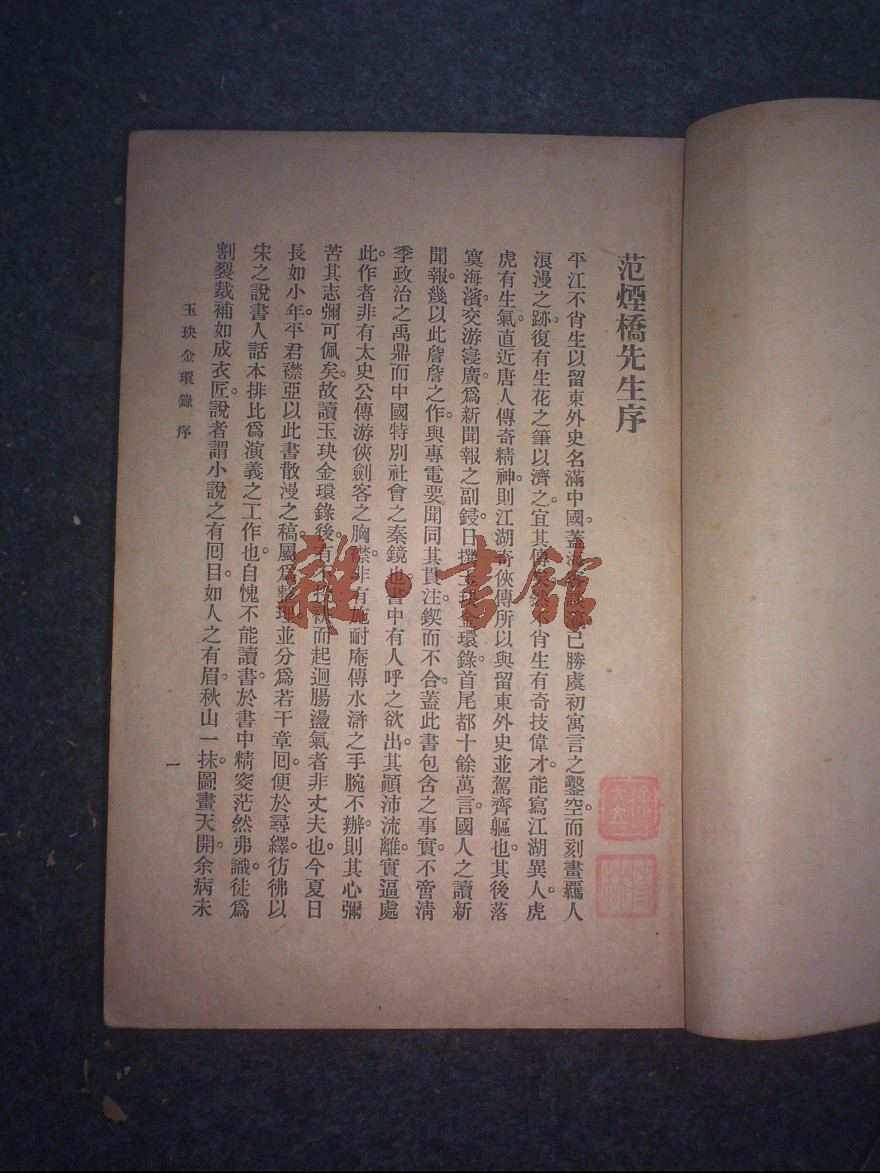 范煙橋先生序
平江不肖生以留東外史名滿中國。蓋已勝虞初寓言之鑿空。而刻畫羈人
浪漫之跡。復有生花之筆以濟之。宜其傳矣。不肖生有奇技偉才。能寫江湖異人。虎
虎有生氣。直近唐人傳奇精神。則江湖奇俠傳所以與留東外史並駕齊軀也。其後落
寞海濱。交游寖廣。爲新聞報之副鋟。日撰玉玦金環錄。首尾都十餘萬言。國人之讀新
聞報。幾以此詹詹之作。與專電要聞同其貫注。鍥而不合。蓋此書包含之事實。不啻清
季政治之禹鼎。而中國特別社會之秦鏡也。書中有人呼之欲出。其顚沛流離。實逼處
此。作者非有太史公傳游俠劍客之胸襟。非有施耐庵傳水滸之手腕不辦。則其心彌
苦。其志彌可佩矣。故讀玉玦金環錄後。有不而起迴腸盪氣者非丈夫也。今夏日
長如小年。平君襟亞以此書散漫之稿。屬爲整理。並分爲若干章囘。便於尋繹。彷彿以
宋之說書人話本排比爲演義之工作也。自愧不能讀書。於書中精突茫然弗識。徒爲
割裂裁補如成衣匠。說者謂小說之有囘目。如人之有眉。秋山一抹。圖畫天開。余病未
玉玦金環錄 序
一
雜·書館